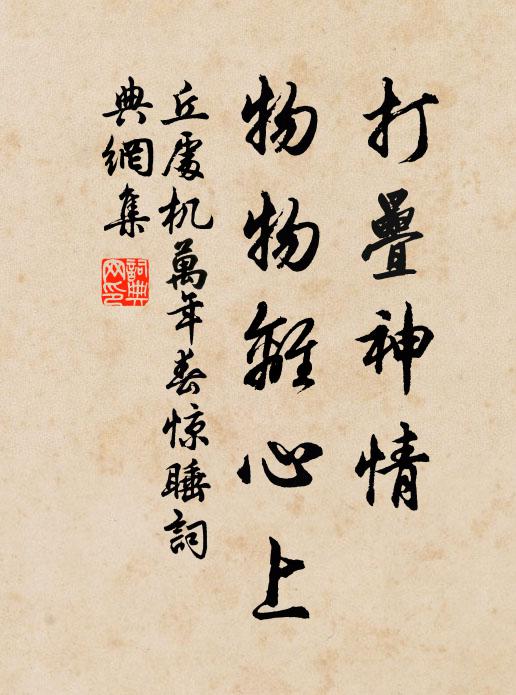 打疊神情
物物離心上
丘處机萬年春惊睡詞
典網集
詞典
网印